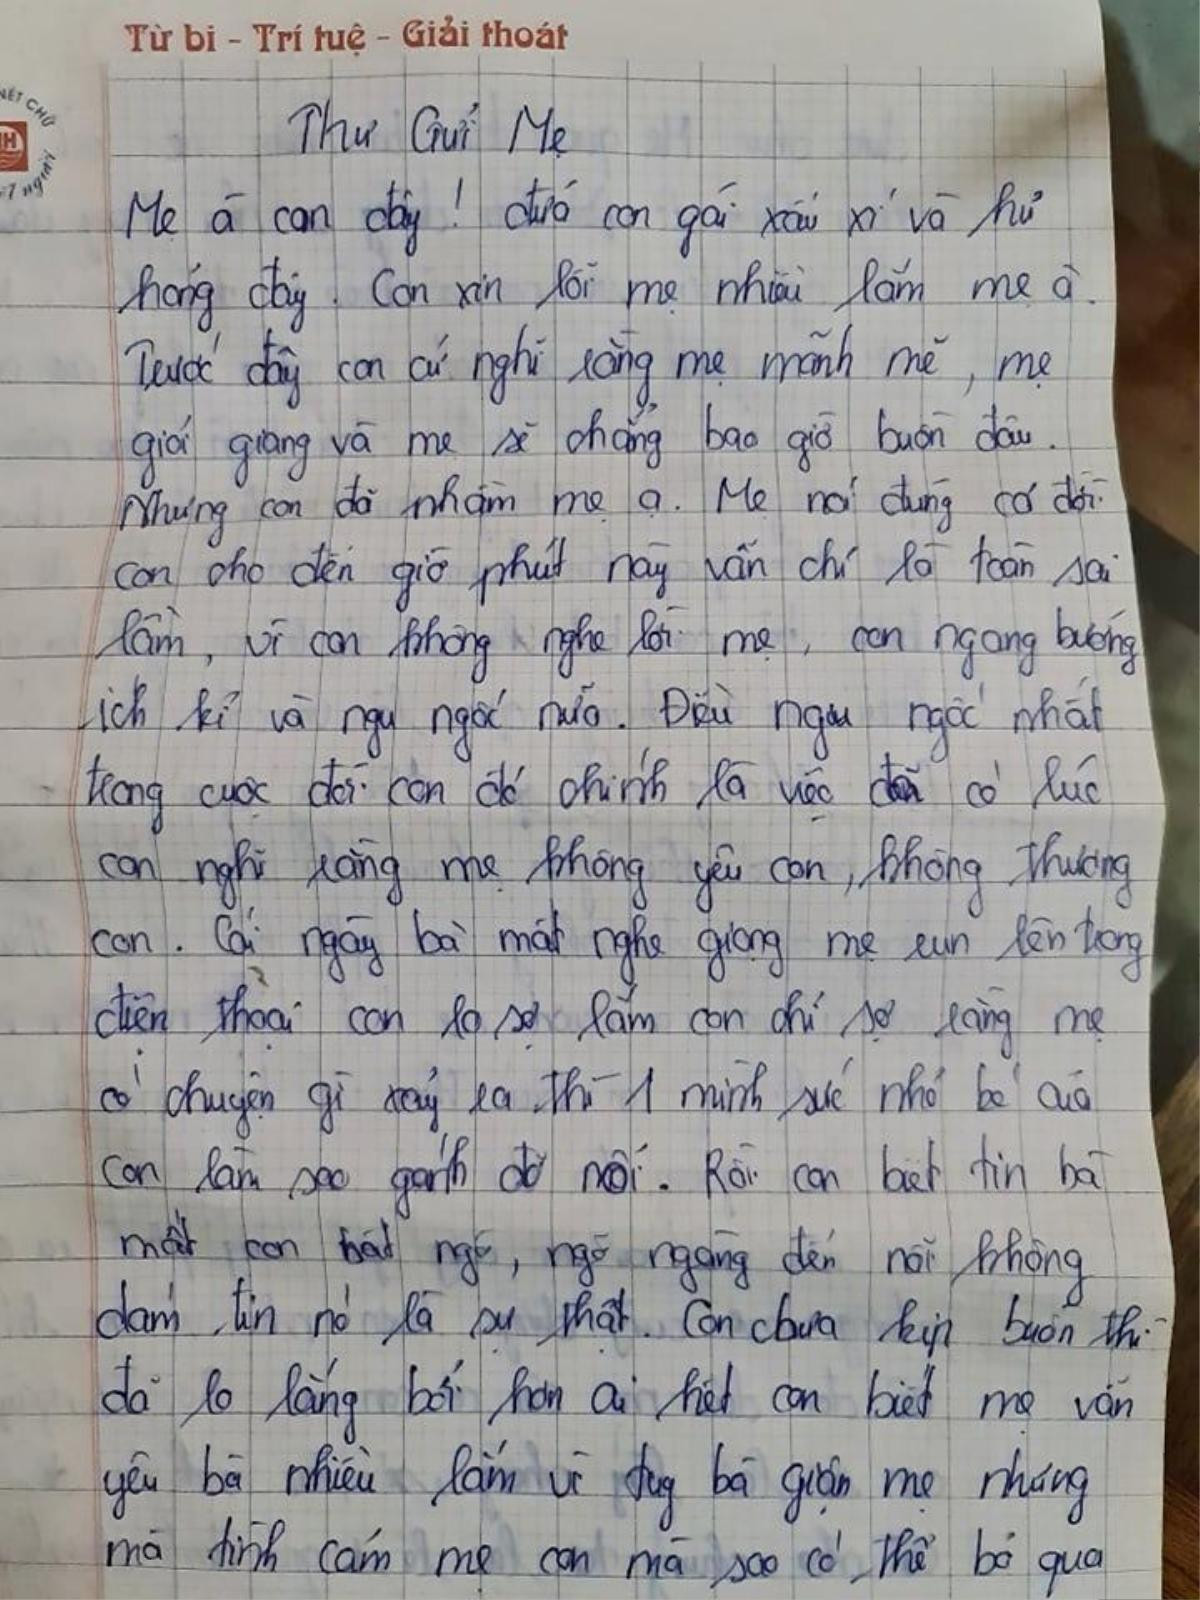 Từ bi - Trí tuệ - Giải thoát
NÉT CHỮ
NH
NẾT NGƯỜI
Thư Gửi Mẹ
Mẹ à con đây! đứa con gái xấu xí và hư
hỏng đây. Con xin lỗi mẹ nhiều lắm mẹ à.
Trước đây con cứ nghĩ rằng mẹ mãnh mẽ, mẹ
giỏi giang và mẹ sẽ chẳng bao giờ buồn đâu.
Nhưng con đã nhầm mẹ ạ. Mẹ nói đúng cơ đời
con cho đến giờ phút này vẫn chỉ là toàn sai
lầm, vì con không nghe lời mẹ, con ngang bướng
ích kỉ và ngu ngốc nữa. Điều ngu ngốc nhất
trong cuộc đời con đó chính là việc đã có lúc
con nghĩ rằng mẹ không yêu con, không thương
con. Cái ngày bà mất nghe giọng mẹ run lên trong
điện thoại con lo sợ lắm con chỉ sợ rằng mẹ
có chuyện gì xảy ra thì 1 mình sức nhỏ bé của
con làm sao gánh đỡ nổi. Rồi con biết tin bà
mất con bất ngờ, ngỡ ngàng đến nỗi không
dám tin nó là sự thật. Con chưa kịp buồn thì
đã lo lắng bởi hơn ai hết con biết mẹ vẫn
yêu bà nhiều lắm vì tuy bà giận mẹ nhưng
mà tình cảm mẹ con mà sao có thể bỏ qua